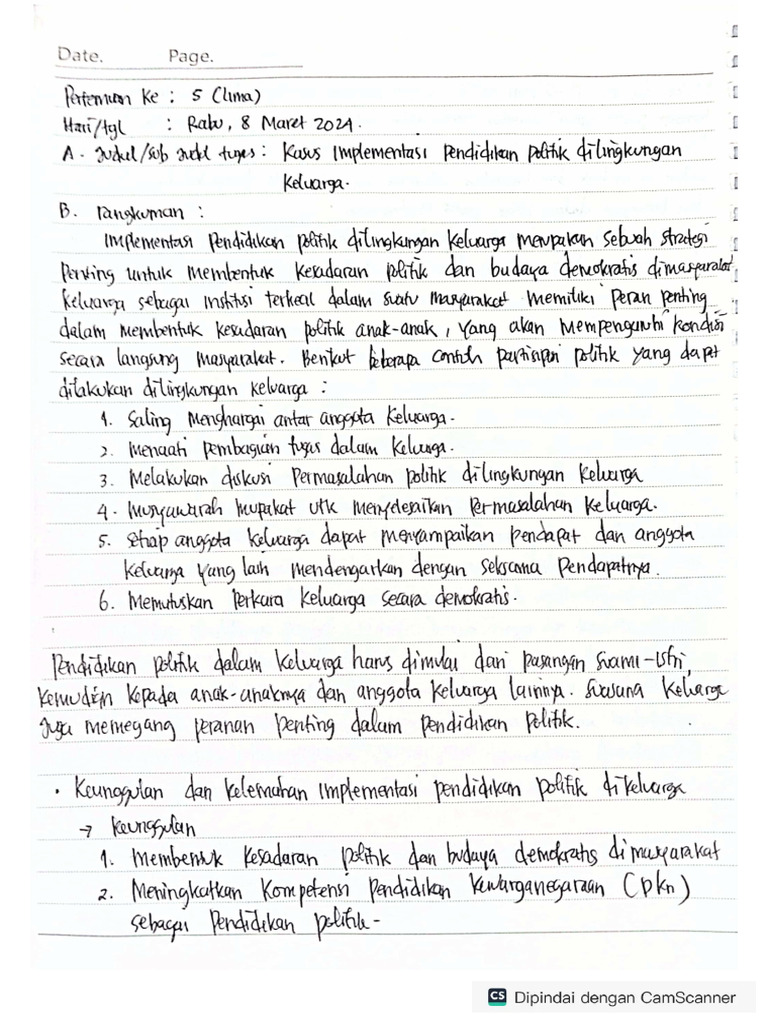 Date. Page.
Pertemuan Ke : 5 (lima)
Hari/tgl : Rabu, 8 Maret 2024.
A. Judul/sub judul tugas : Kasus Implementasi Pendidikan politik dilingkungan
Keluarga.
B. rangkuman :
Implementasi Pendidikan politik dilingkungan keluarga merupakan sebuah strategi
penting untuk membentuk kesadaran politik dan budaya demokratis dimasyarakat
keluarga sebagai institusi terkecil dalam suatu masyarakat memiliki peran penting
dalam membentuk kesadaran politik anak-anak, yang akan mempengaruhi kondisi
secara langsung masyarakat. Berikut beberapa contoh partisipasi politik yang dapat
dilakukan dilingkungan keluarga :
1. Saling menghargai antar anggota keluarga.
2. Menaati pembagian tugas dalam keluarga.
3. Melakukan diskusi Permasalahan politik dilingkungan keluarga
4. Musyawarah mupakat utk menyelesaikan Permasalahan keluarga.
5. Setiap anggota keluarga dapat menyampaikan pendapat dan anggota
keluarga yang lain mendengarkan dengan seksama Pendapatnya.
6. Memutuskan Perkara keluarga secara demokratis.
Pendidikan politik dalam keluarga harus dimulai dari pasangan suami-istri,
kemudian kepada anak-anaknya dan anggota keluarga lainnya. Suasana keluarga
Juga memegang peranan penting dalam pendidikan politik.
• Keunggulan dan kelemahan implementasi pendidikan politik di keluarga
→ keunggulan
1. Membentuk kesadaran politik dan budaya demokratis di masyarakat
2. Meningkatkan kompetensi pendidikan kewarganegaraan (pkn)
sebagai pendidikan politik-
CS Dipindai dengan CamScanner